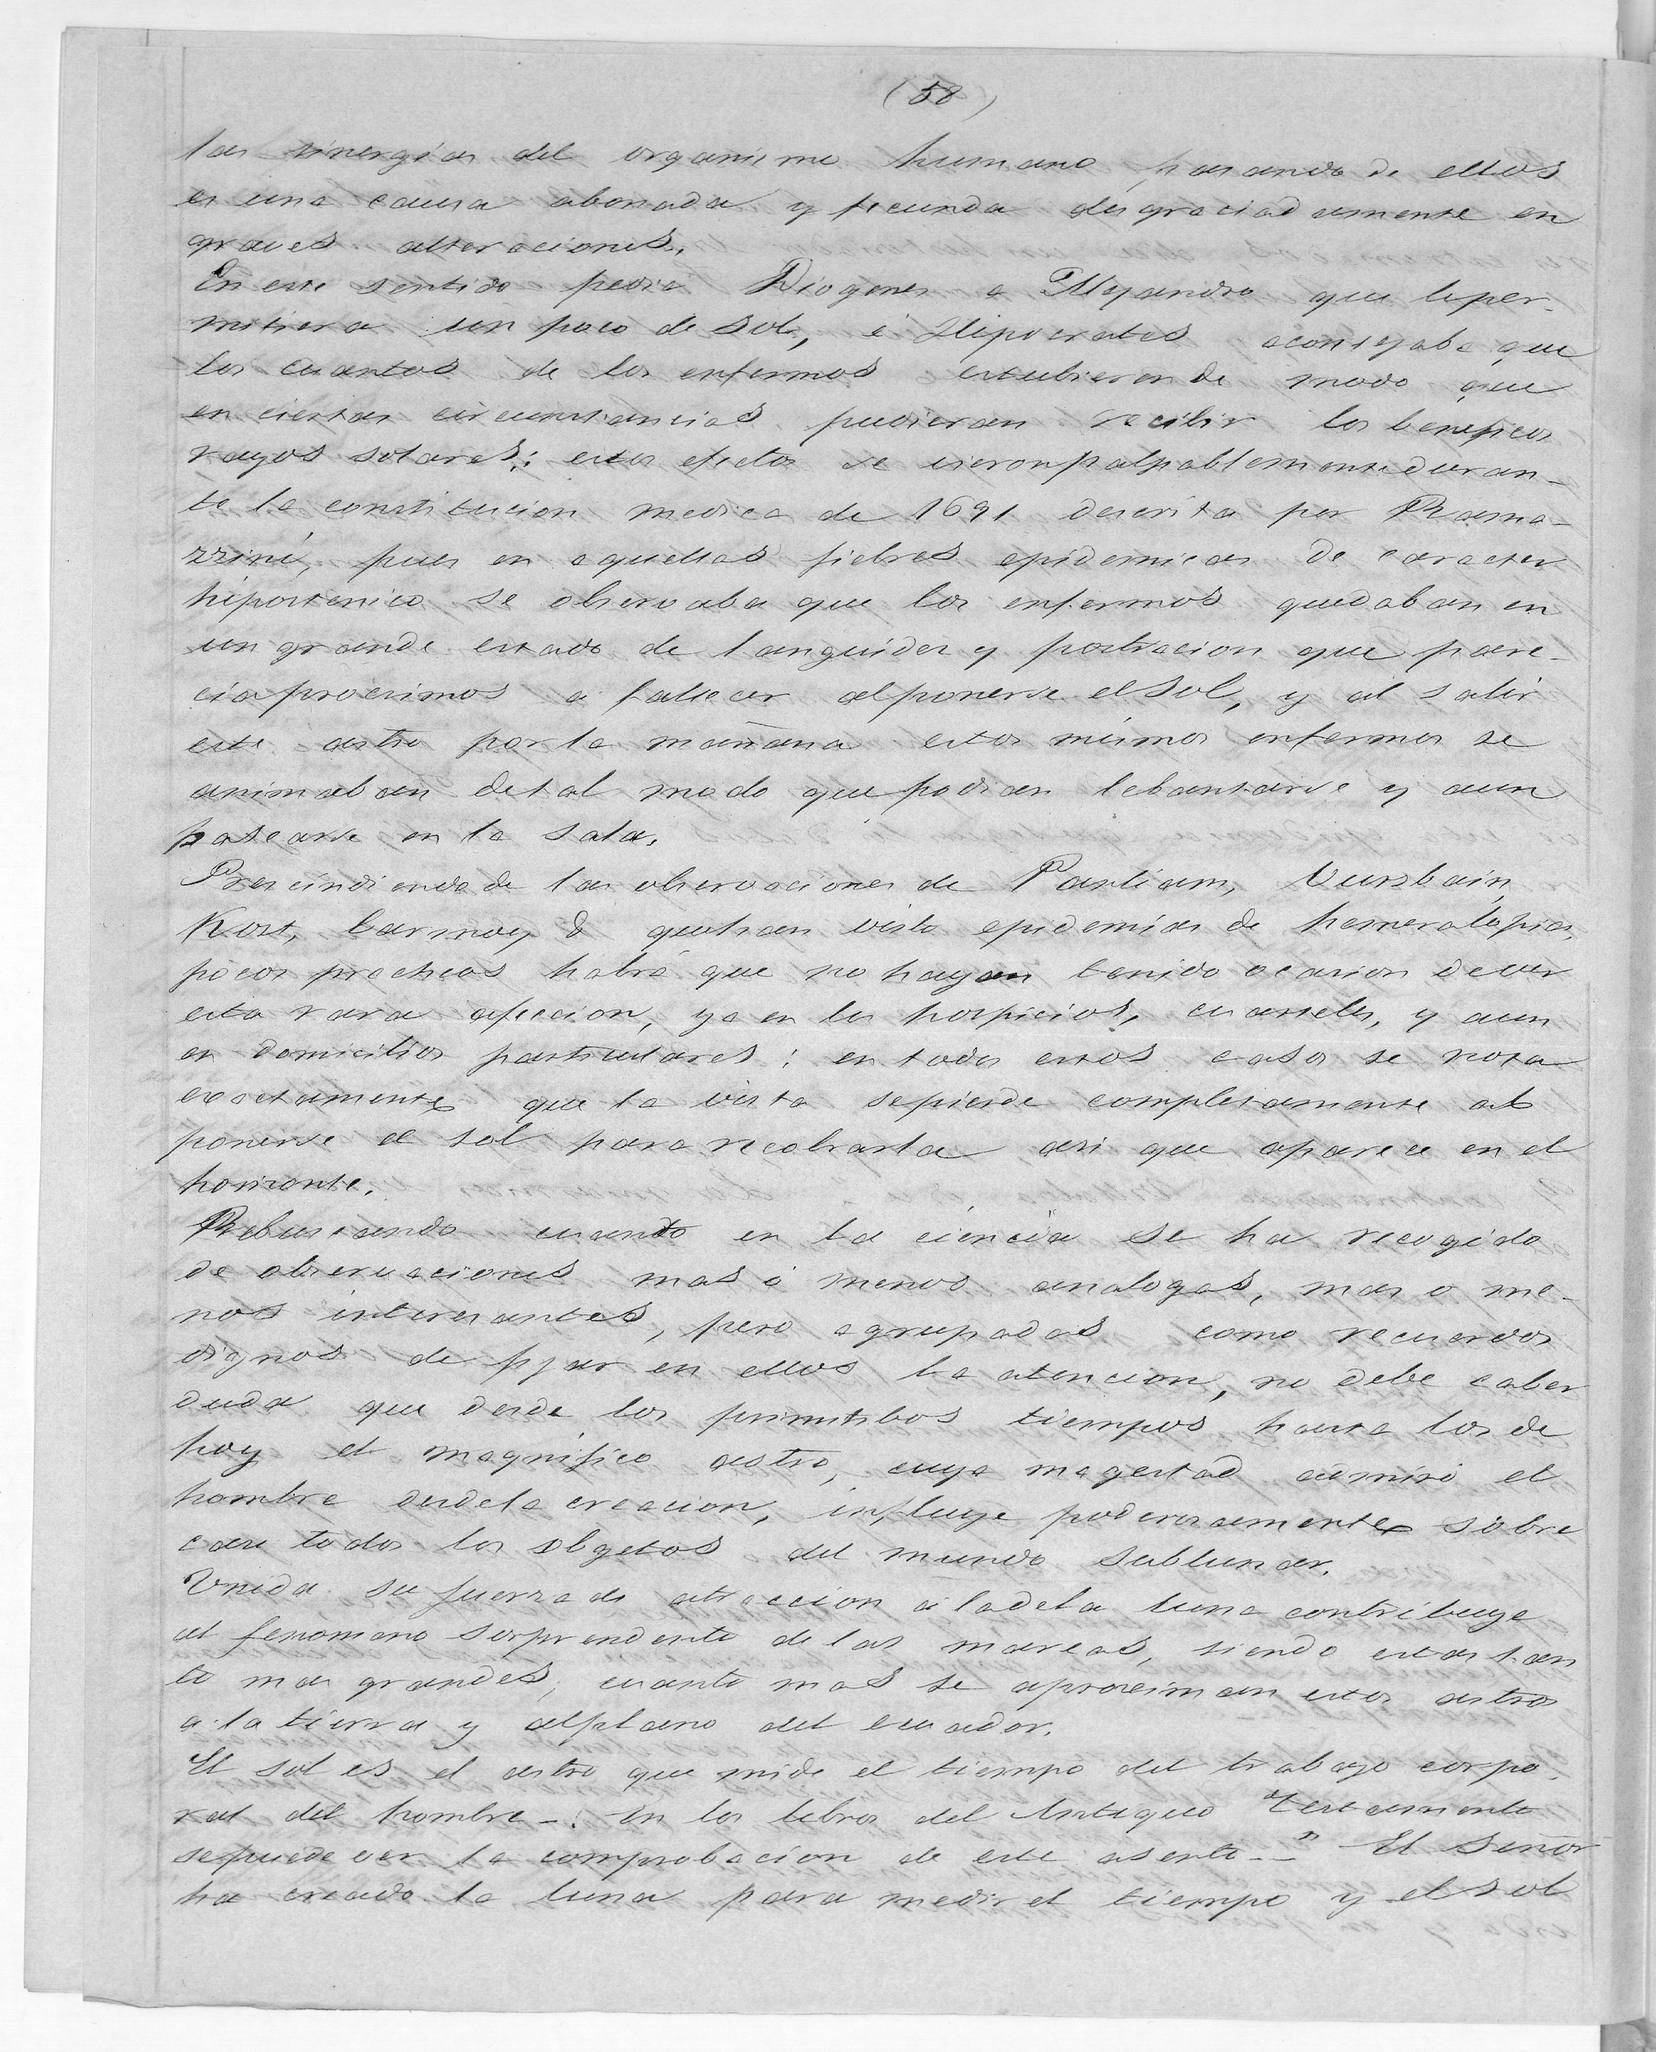 (58)
las sinergias del organismo humano, pasando de ellos
es una causa abonada y fecunda desgraciadamente en
graves alteraciones.
En este sentido pedia Diogenes a Alejandro que le per-
mitiera un poco de sol, é Hipocrates aconsejaba que
los cuartos de los enfermos estubieran de modo que
en ciertas circunstancias pudieran recibir los beneficos
rayos solares; estos efectos se vieron palpablemente duran-
te la constitucion medica de 1691 descrita por Rama-
zzini, pues en aquellas fiebres epidemicas de caracter
hipostenico se observaba que los enfermos quedaban en
un grande estado de languidez y postracion que pare-
cia procsimos a fallecer al ponerse el sol, y al salir
este astro por la mañana estos mismos enfermos se
animaban de tal modo que podian lebantarse y aun
pasearse en la sala.
Prescindiendo de las observaciones de
que han visto epidemias de hemeralopias,
pocos practicos habrá que no hayan tenido ocasion de ver
esta rara afeccion, ya en los hospicios, cuarteles, y aun
en domicilios particulares: en todos estos casos se nota
exactamente que la vista se pierde completamente al
ponerse el sol para recobrarla asi que aparece en el
horizonte.
Rebuscando cuanto en la ciencia se ha recogido
de observaciones mas ó menos analogas, mas o me-
nos interesantes, pero agrupadas como recuerdos
dignos de fijar en ellos la atencion, no debe caber
duda que desde los primitibos tiempos hasta los de
hoy el magnifico astro, cuya magestad admiró el
hombre desde la creacion, influye poderosamente sobre
casi todos los objetos del mundo sublunar.
Unida su fuerza de atraccion á la de la luna contribuye
al fenomeno sorprendente de las mareas, siendo estas tan
to mas grandes, cuanto mas se aprocsiman estos astros
a la tierra y al plano del ecuador.
El sol es el astro que mide el tiempo del trabajo corpo-
ral del hombre -: en los libros del Antiguo Testamento
se puede ver la comprobacion de este aserto - " El Señor
ha creado la luna para medir el tiempo y el sol